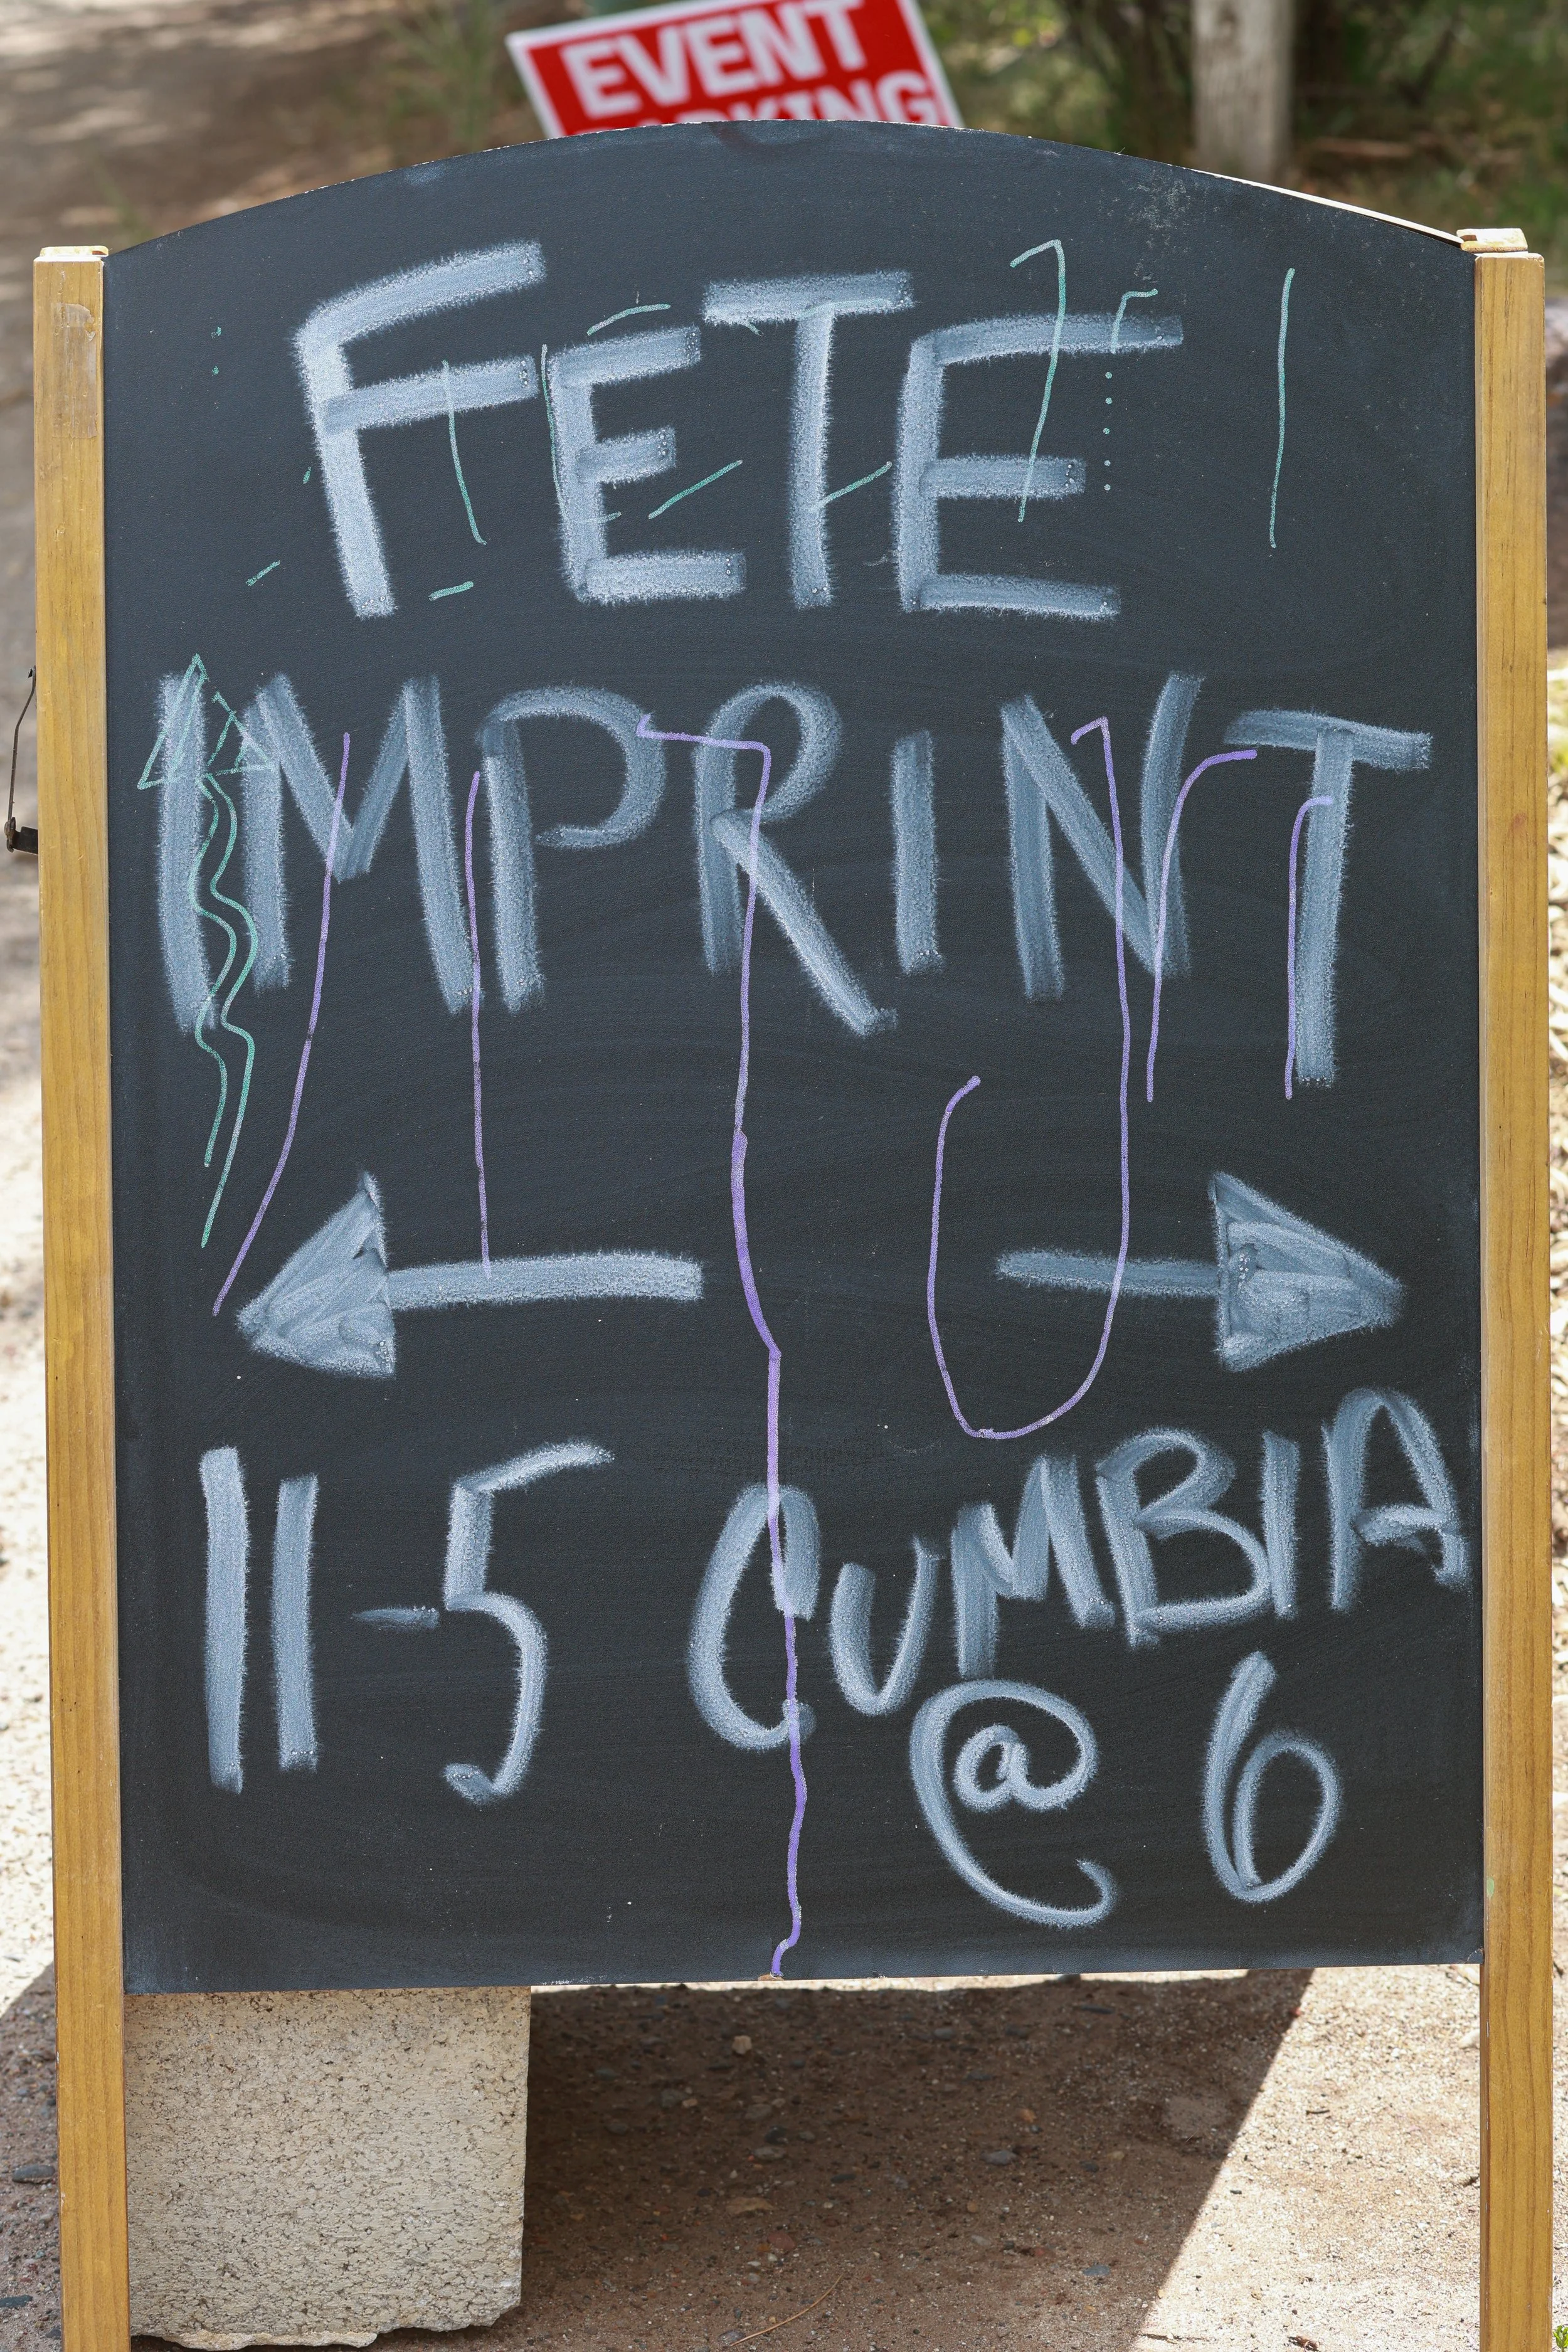 EVENT
FETE
IMPRINT
11-5 CUMBIA
@ 6